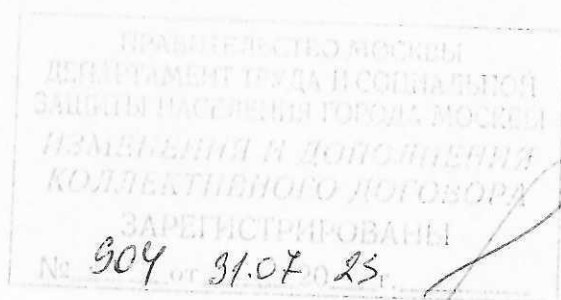 ПРАВИТЕЛЬСТВО МОСКВЫ
ДЕПАРТАМЕНТ ТРУДА И СОЦИАЛЬНОЙ
ЗАЩИТЫ НАСЕЛЕНИЯ ГОРОДА МОСКВЫ
ИЗМЕНЕНИЯ И ДОПОЛНЕНИЯ
КОЛЛЕКТИВНОГО ДОГОВОРА
ЗАРЕГИСТРИРОВАНЫ
№ 904 от 31.07 2025 г.